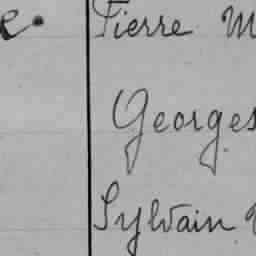 Pierre M
Georges
Sylvain